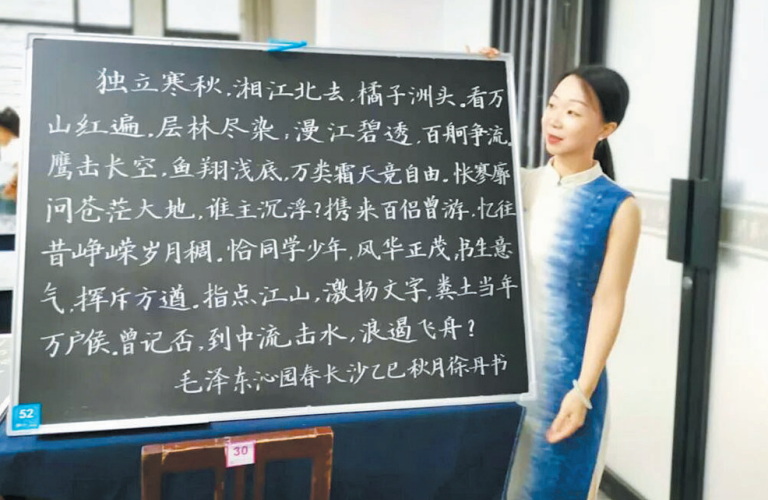 独立寒秋，湘江北去，橘子洲头。看万
山红遍，层林尽染；漫江碧透，百舸争流。
鹰击长空，鱼翔浅底，万类霜天竞自由。怅寥廓
问苍茫大地，谁主沉浮？携来百侣曾游，忆往
昔峥嵘岁月稠。恰同学少年，风华正茂，书生意
气，挥斥方遒。指点江山，激扬文字，粪土当年
万户侯。曾记否，到中流击水，浪遏飞舟？
毛泽东沁园春长沙乙巳秋月徐丹书
52
30